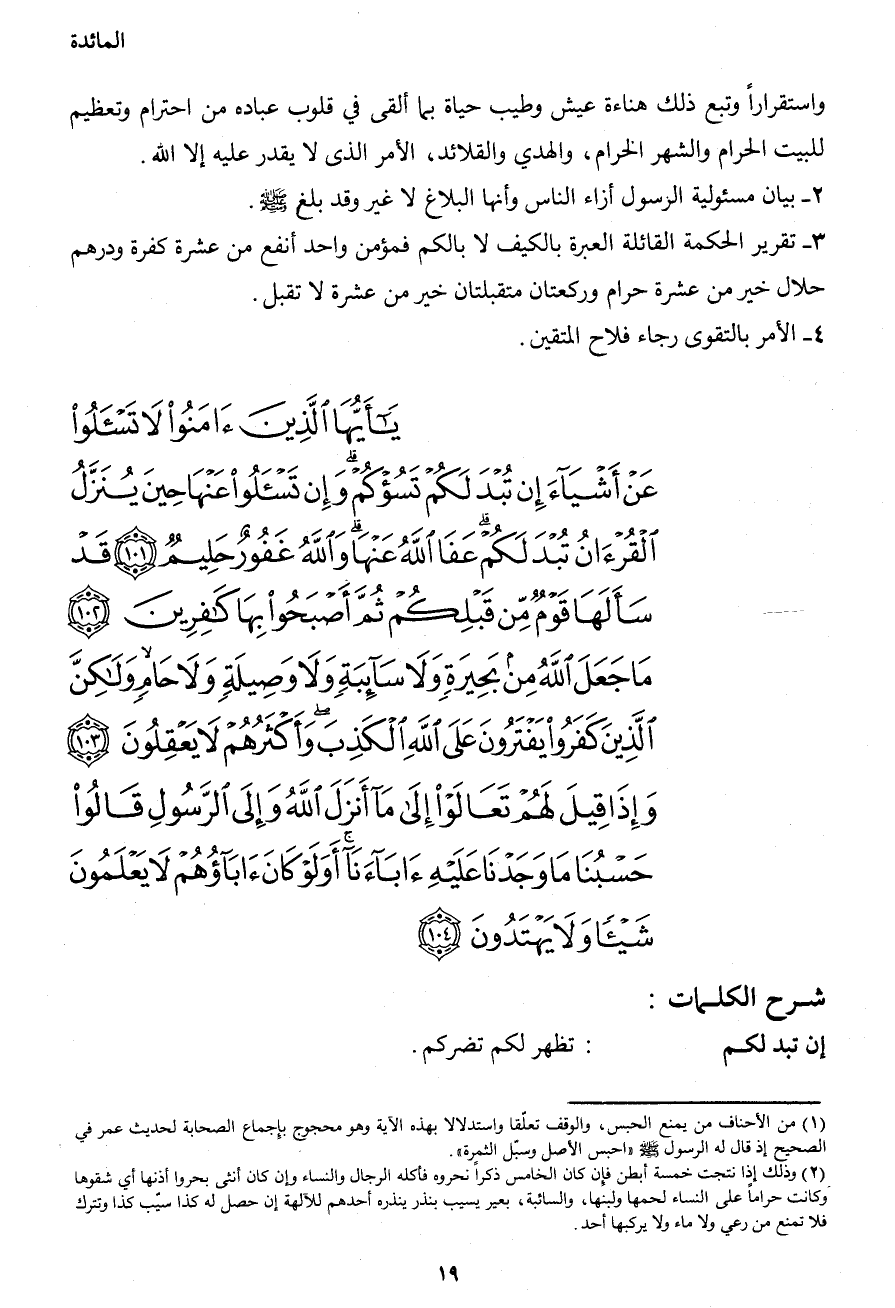 المائدة
واستقراراً وتبع ذلك هناءة عيش وطيب حياة بما ألقى في قلوب عباده من احترام وتعظيم
للبيت الحرام والشهر الحرام، والهدي والقلائد، الأمر الذى لا يقدر عليه إلا الله .
٢ـ بيان مسئولية الرسول أزاء الناس وأنها البلاغ لا غير وقد بلغ ﷺ .
٣ـ تقرير الحكمة القائلة العبرة بالكيف لا بالكم فمؤمن واحد أنفع من عشرة كفرة ودرهم
حلال خير من عشرة حرام وركعتان متقبلتان خير من عشرة لا تقبل .
٤ـ الأمر بالتقوى رجاء فلاح المتقين .
يَٰٓأَيُّهَا ٱلَّذِينَ ءَامَنُوا۟ لَا تَسْـَٔلُوا۟
عَنْ أَشْيَآءَ إِن تُبْدَ لَكُمْ تَسُؤْكُمْ ۖ وَإِن تَسْـَٔلُوا۟ عَنْهَا حِينَ يُنَزَّلُ
ٱلْقُرْءَانُ تُبْدَ لَكُمْ ۖ عَفَا ٱللَّهُ عَنْهَا ۗ وَٱللَّهُ غَفُورٌ حَلِيمٌ ﴿١٠١﴾ قَدْ
سَأَلَهَا قَوْمٌ مِّن قَبْلِكُمْ ثُمَّ أَصْبَحُوا۟ بِهَا كَٰفِرِينَ ﴿١٠٢﴾
مَا جَعَلَ ٱللَّهُ مِنۢ بَحِيرَةٍ وَلَا سَآئِبَةٍ وَلَا وَصِيلَةٍ وَلَا حَامٍ ۙ وَلَٰكِنَّ
ٱلَّذِينَ كَفَرُوا۟ يَفْتَرُونَ عَلَى ٱللَّهِ ٱلْكَذِبَ ۖ وَأَكْثَرُهُمْ لَا يَعْقِلُونَ ﴿١٠٣﴾
وَإِذَا قِيلَ لَهُمْ تَعَالَوْا۟ إِلَىٰ مَآ أَنزَلَ ٱللَّهُ وَإِلَى ٱلرَّسُولِ قَالُوا۟
حَسْبُنَا مَا وَجَدْنَا عَلَيْهِ ءَابَآءَنَآ ۚ أَوَلَوْ كَانَ ءَابَآؤُهُمْ لَا يَعْلَمُونَ
شَيْـًٔا وَلَا يَهْتَدُونَ ﴿١٠٤﴾
شرح الكلمات :
إن تبد لكم : تظهر لكم تضركم .
(١) من الأحناف من يمنع الحبس، والوقف تعلّقا واستدلالا بهذه الآية وهو محجوج بإجماع الصحابة لحديث عمر في
الصحيح إذ قال له الرسول ﷺ «احبس الأصل وسبّل الثمرة».
(٢) وذلك إذا نتجت خمسة أبطن فإن كان الخامس ذكراً نحروه فأكله الرجال والنساء وإن كان أنثى بحروا أذنها أي شقوها
وكانت حراماً على النساء لحمها ولبنها، والسائبة، بعير يسيب بنذر ينذره أحدهم للآلهة إن حصل له كذا سيّب كذا وتترك
فلا تمنع من رعي ولا ماء ولا يركبها أحد .
١٩